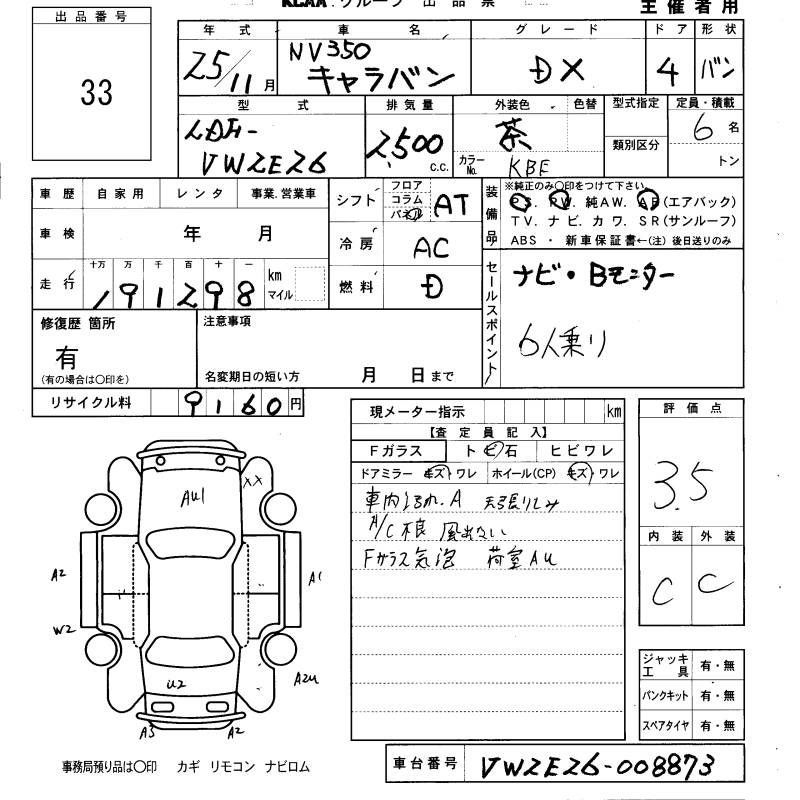 KCAA グループ 出品票
主催者用
出品番号
33
年式 車名 グレード ドア 形状
25/11月 NV350 キャラバン DX 4 バン
型式 排気量 外装色 色替 型式指定 定員・積載
LDF-VW2E26 2,500 c.c. 茶 類別区分 6名
カラーNo. KBE トン
車歴 自家用 レンタ 事業.営業車
車検 年 月
走行 十万 万 千 百 十 一
191298 km マイル
シフト フロア コラム パネル AT
冷房 AC
燃料 D
装備品 ※純正のみ〇印をつけて下さい。
PS. PW. 純AW. AB(エアバック)
TV. ナビ. カワ. SR(サンルーフ)
ABS ・ 新車保証書←(注) 後日送りのみ
セールスポイント ナビ・Bモニター
6人乗り
修復歴 箇所
有
(有の場合は〇印を)
注意事項
名変期日の短い方 月 日まで
リサイクル料 9160円
現メーター指示 km
【査定員記入】
Fガラス トビ石 ヒビワレ
ドアミラー キズ ワレ ホイール(CP) キズ ワレ
車内汚れ.A 天張りしみ
A/C不良 風出ない
Fガラス気泡 荷室AU
評価点
3.5
内装 外装
C C
ジャッキ工具 有・無
パンクキット 有・無
スペアタイヤ 有・無
XX
AU1
A2
A1
W2
U2
A2U
A3
A2
事務局預り品は〇印 カギ リモコン ナビロム
車台番号 VW2E26-008873